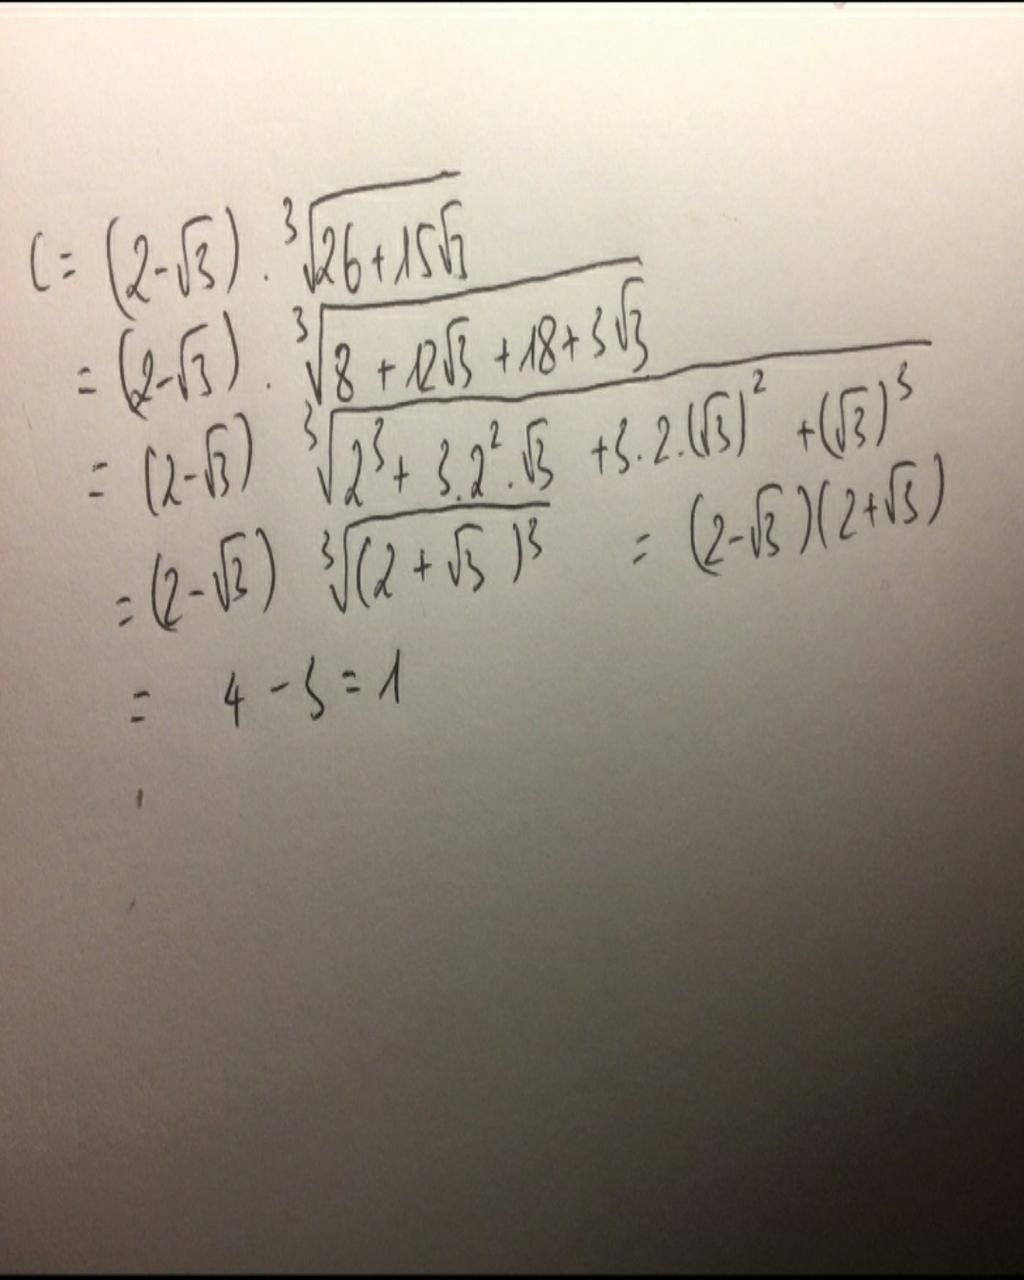 C = (2-√3) . ∛(26+15√3)
= (2-√3) . ∛(8 + 12√3 + 18 + 3√3)
= (2-√3) ∛(2³ + 3.2².√3 + 3.2.(√3)² + (√3)³)
= (2-√3) ∛((2 + √3)³) = (2-√3)(2+√3)
= 4 - 3 = 1